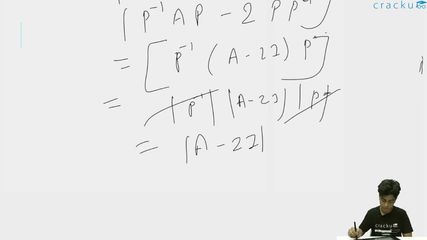 cracku
|P⁻¹ A P - 2 P P⁻¹|
= [P⁻¹ (A - 2I) P]
= |P⁻¹| |A - 2I| |P|
= |A - 2I|
cracku